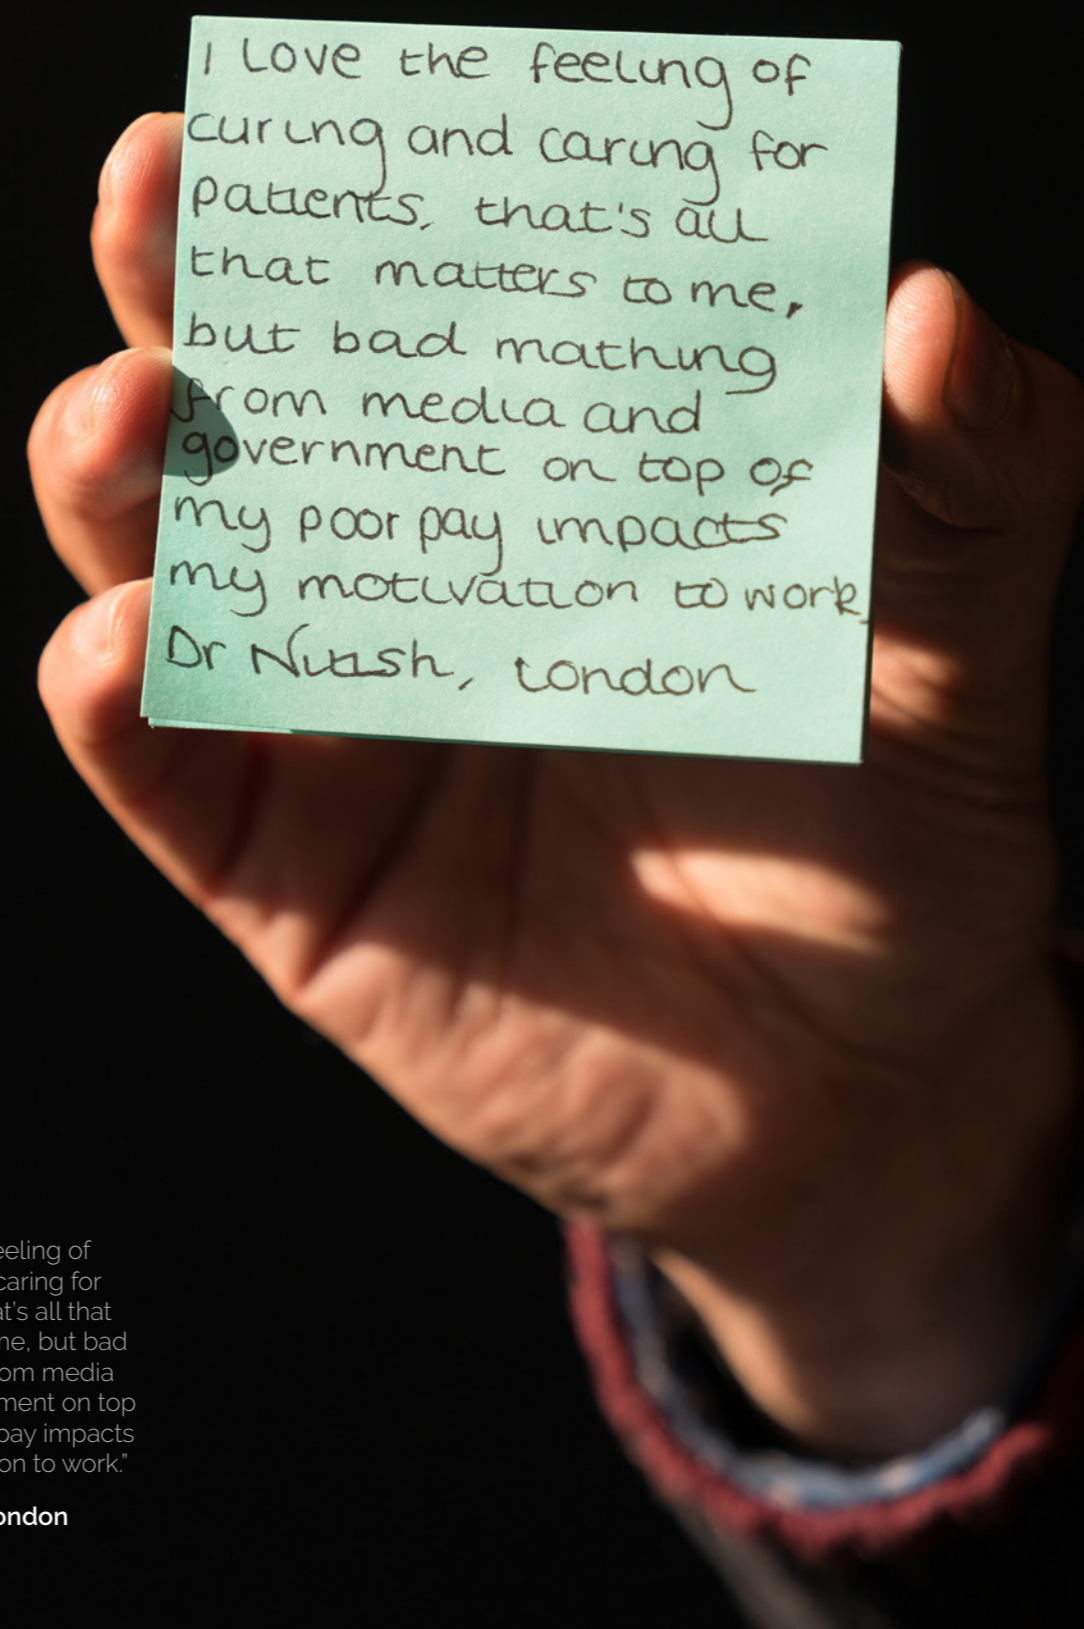 I love the feeling of
curing and caring for
patients, that's all
that matters to me,
but bad mathing
from media and
government on top of
my poor pay impacts
my motivation to work.
Dr, London
eeling of
caring for
at's all that
me, but bad
om media
ment on top
pay impacts
on to work."
ondon